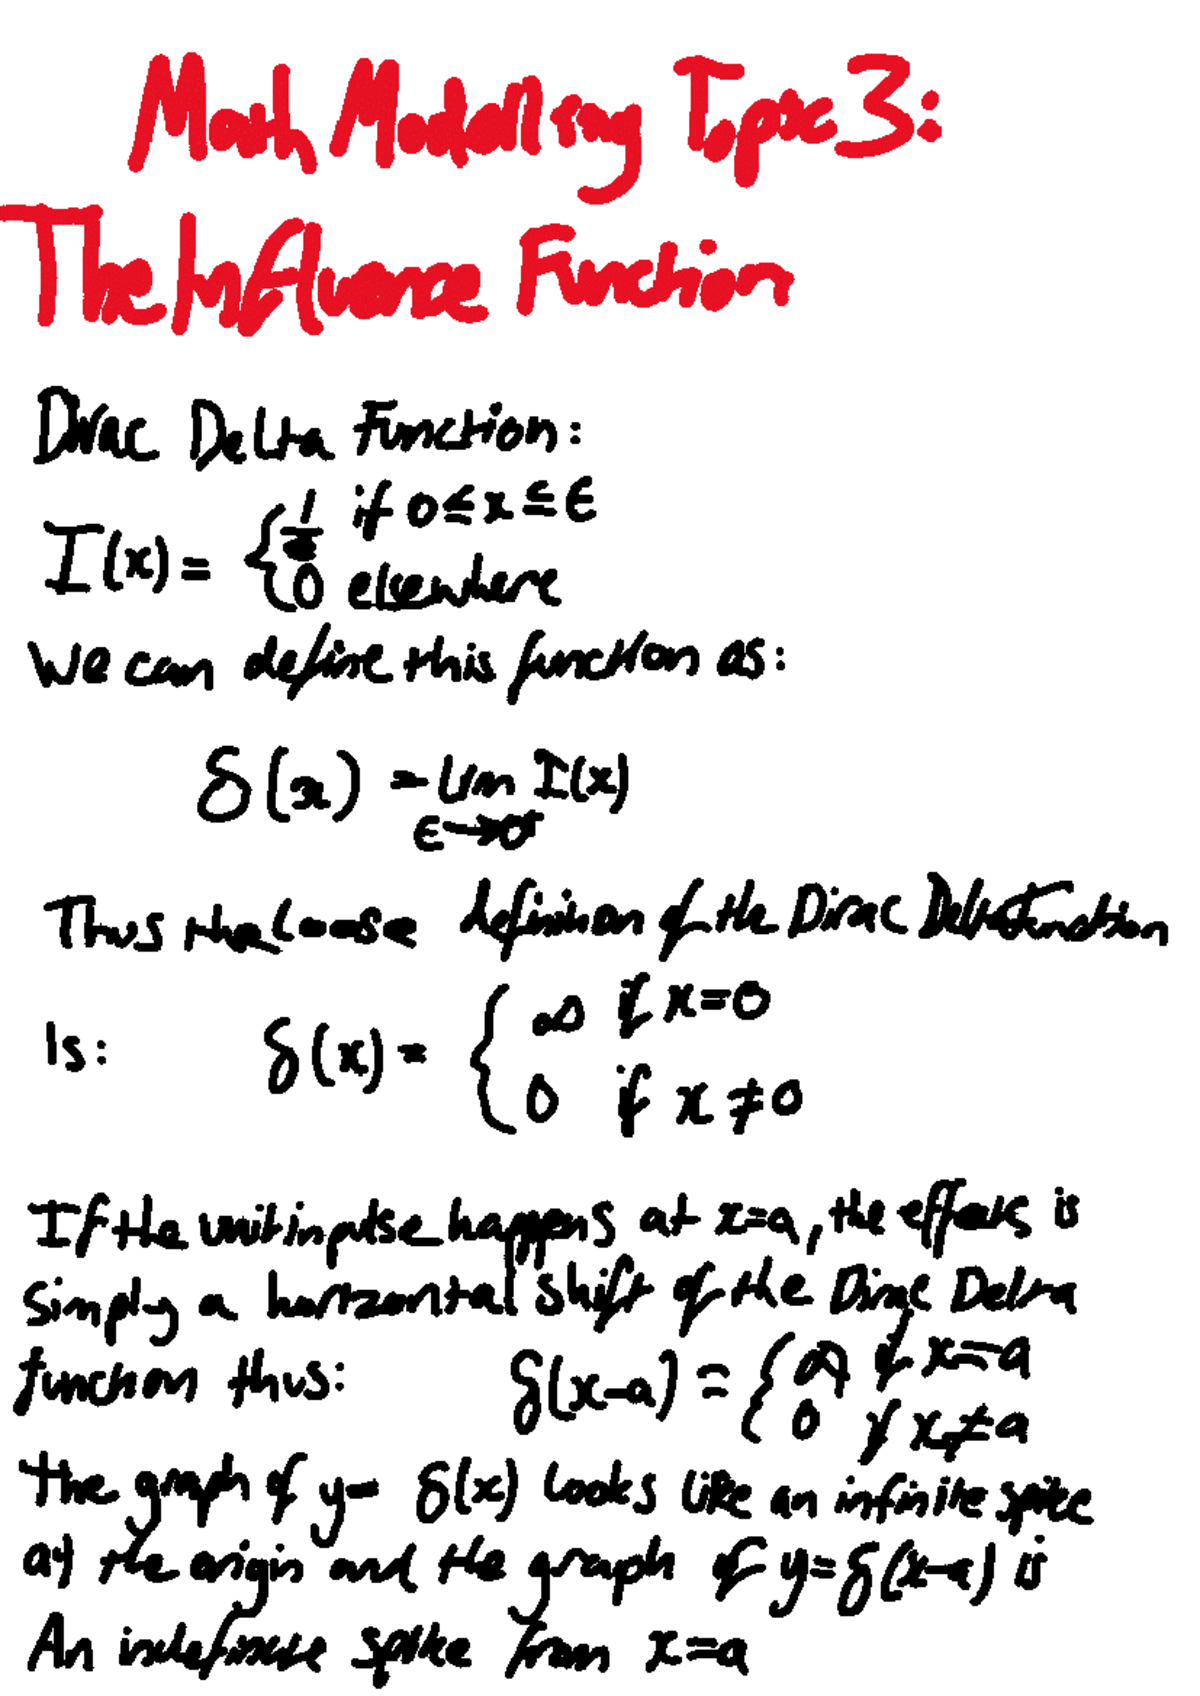 Math Modelling Topic 3:
The Influence Function
Dirac Delta Function:
I(x) = { 1/ϵ if 0 ≤ x ≤ ϵ
0 elsewhere
We can define this function as:
δ(x) = lim I(x)
ϵ→0⁺
Thus the loose definition of the Dirac Delta Function
Is: δ(x) = { ∞ if x=0
0 if x ≠ 0
If the unit inpulse happens at x=a, the effects is
Simply a horizontal shift of the Dirac Delta
function thus: δ(x-a) = { ∞ if x=a
0 if x≠a
The graph of y= δ(x) looks like an infinite spike
at the origin and the graph of y=δ(x-a) is
An indefinite spike from x=a